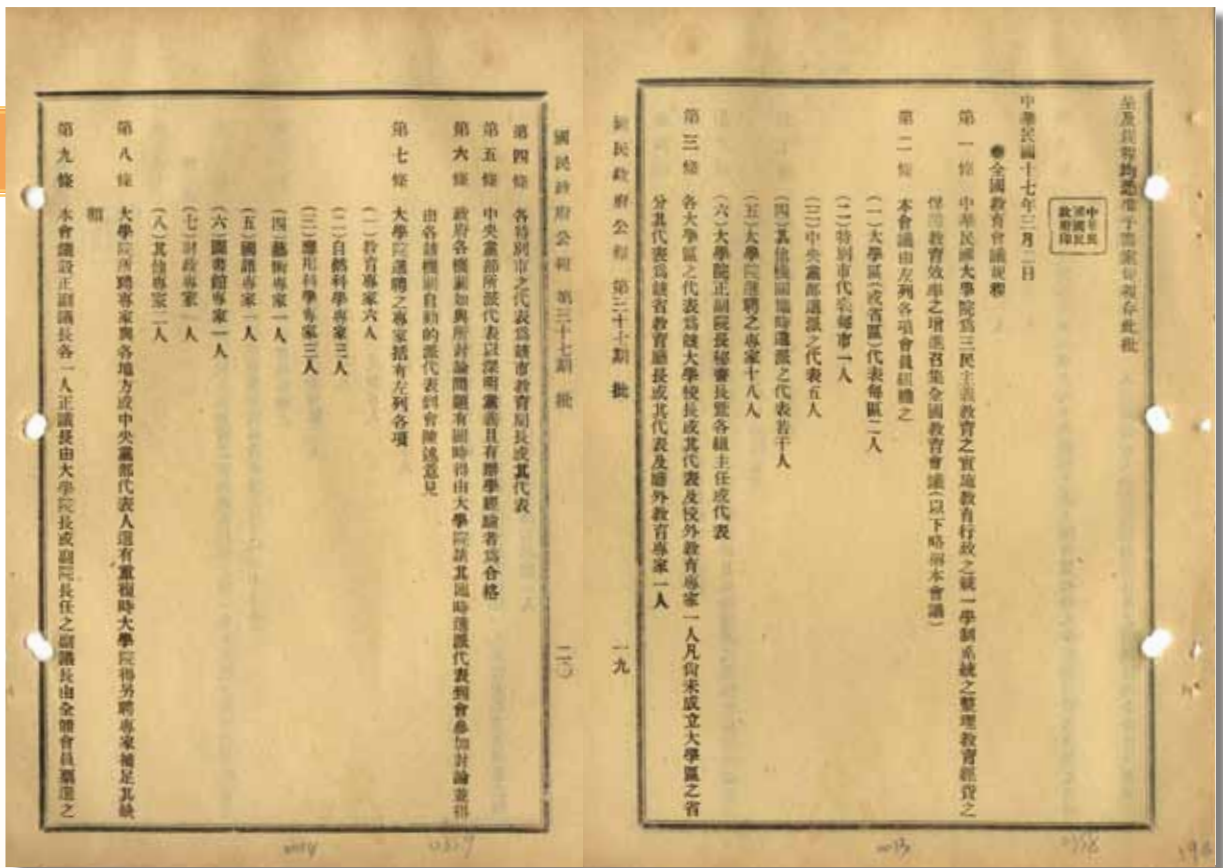 呈及附都均悉准予備案規程存此批
中華民國十七年三月二日
中華民國國民政府印
全國教育會議規程
第一條 中華民國大學院爲三民主義教育之實施教育行政之統一學制系統之整理教育經費之
教育效率之增進召集全國教育會議(以下略稱本會議)
第二條 本會議由左列各項會員組織之
(一)大學區(或省區)代表每區二人
(二)特別市代表每市一人
(三)中央黨部選派之代表五人
(四)其他機關臨時選派之代表若干人
(五)大學院選聘之專家十八人
(六)大學院正副院長秘書長暨各組主任或代表
第三條 各大學區之代表爲該大學校長或其代表及校外教育專家一人凡尚未成立大學區之省
分其代表爲該省教育廳長或其代表及廳外教育專家一人
國民政府公報 第三十七期 批
一九
國民政府公報 第三十七期 批
二〇
第四條 各特別市之代表爲該市教育局長或其代表
第五條 中央黨部所派代表以深明黨義且有辦學經驗者爲合格
第六條 政府各機關如與所討論問題有關時得由大學院請其臨時選派代表到會參加討論並得
由各該機關自動的派代表到會陳述意見
第七條 大學院選聘之專家括有左列各項
(一)教育專家六人
(二)自然科學專家三人
(三)應用科學專家三人
(四)藝術專家一人
(五)國語專家一人
(六)圖書館專家一人
(七)財政專家一人
(八)其他專家二人
第八條 大學院所聘專家與各地方或中央黨部代表人選有重複時大學院得另聘專家補足其缺
額
第九條 本會議設正副議長各一人正議長由大學院長或副院長任之副議長由全體會員票選之